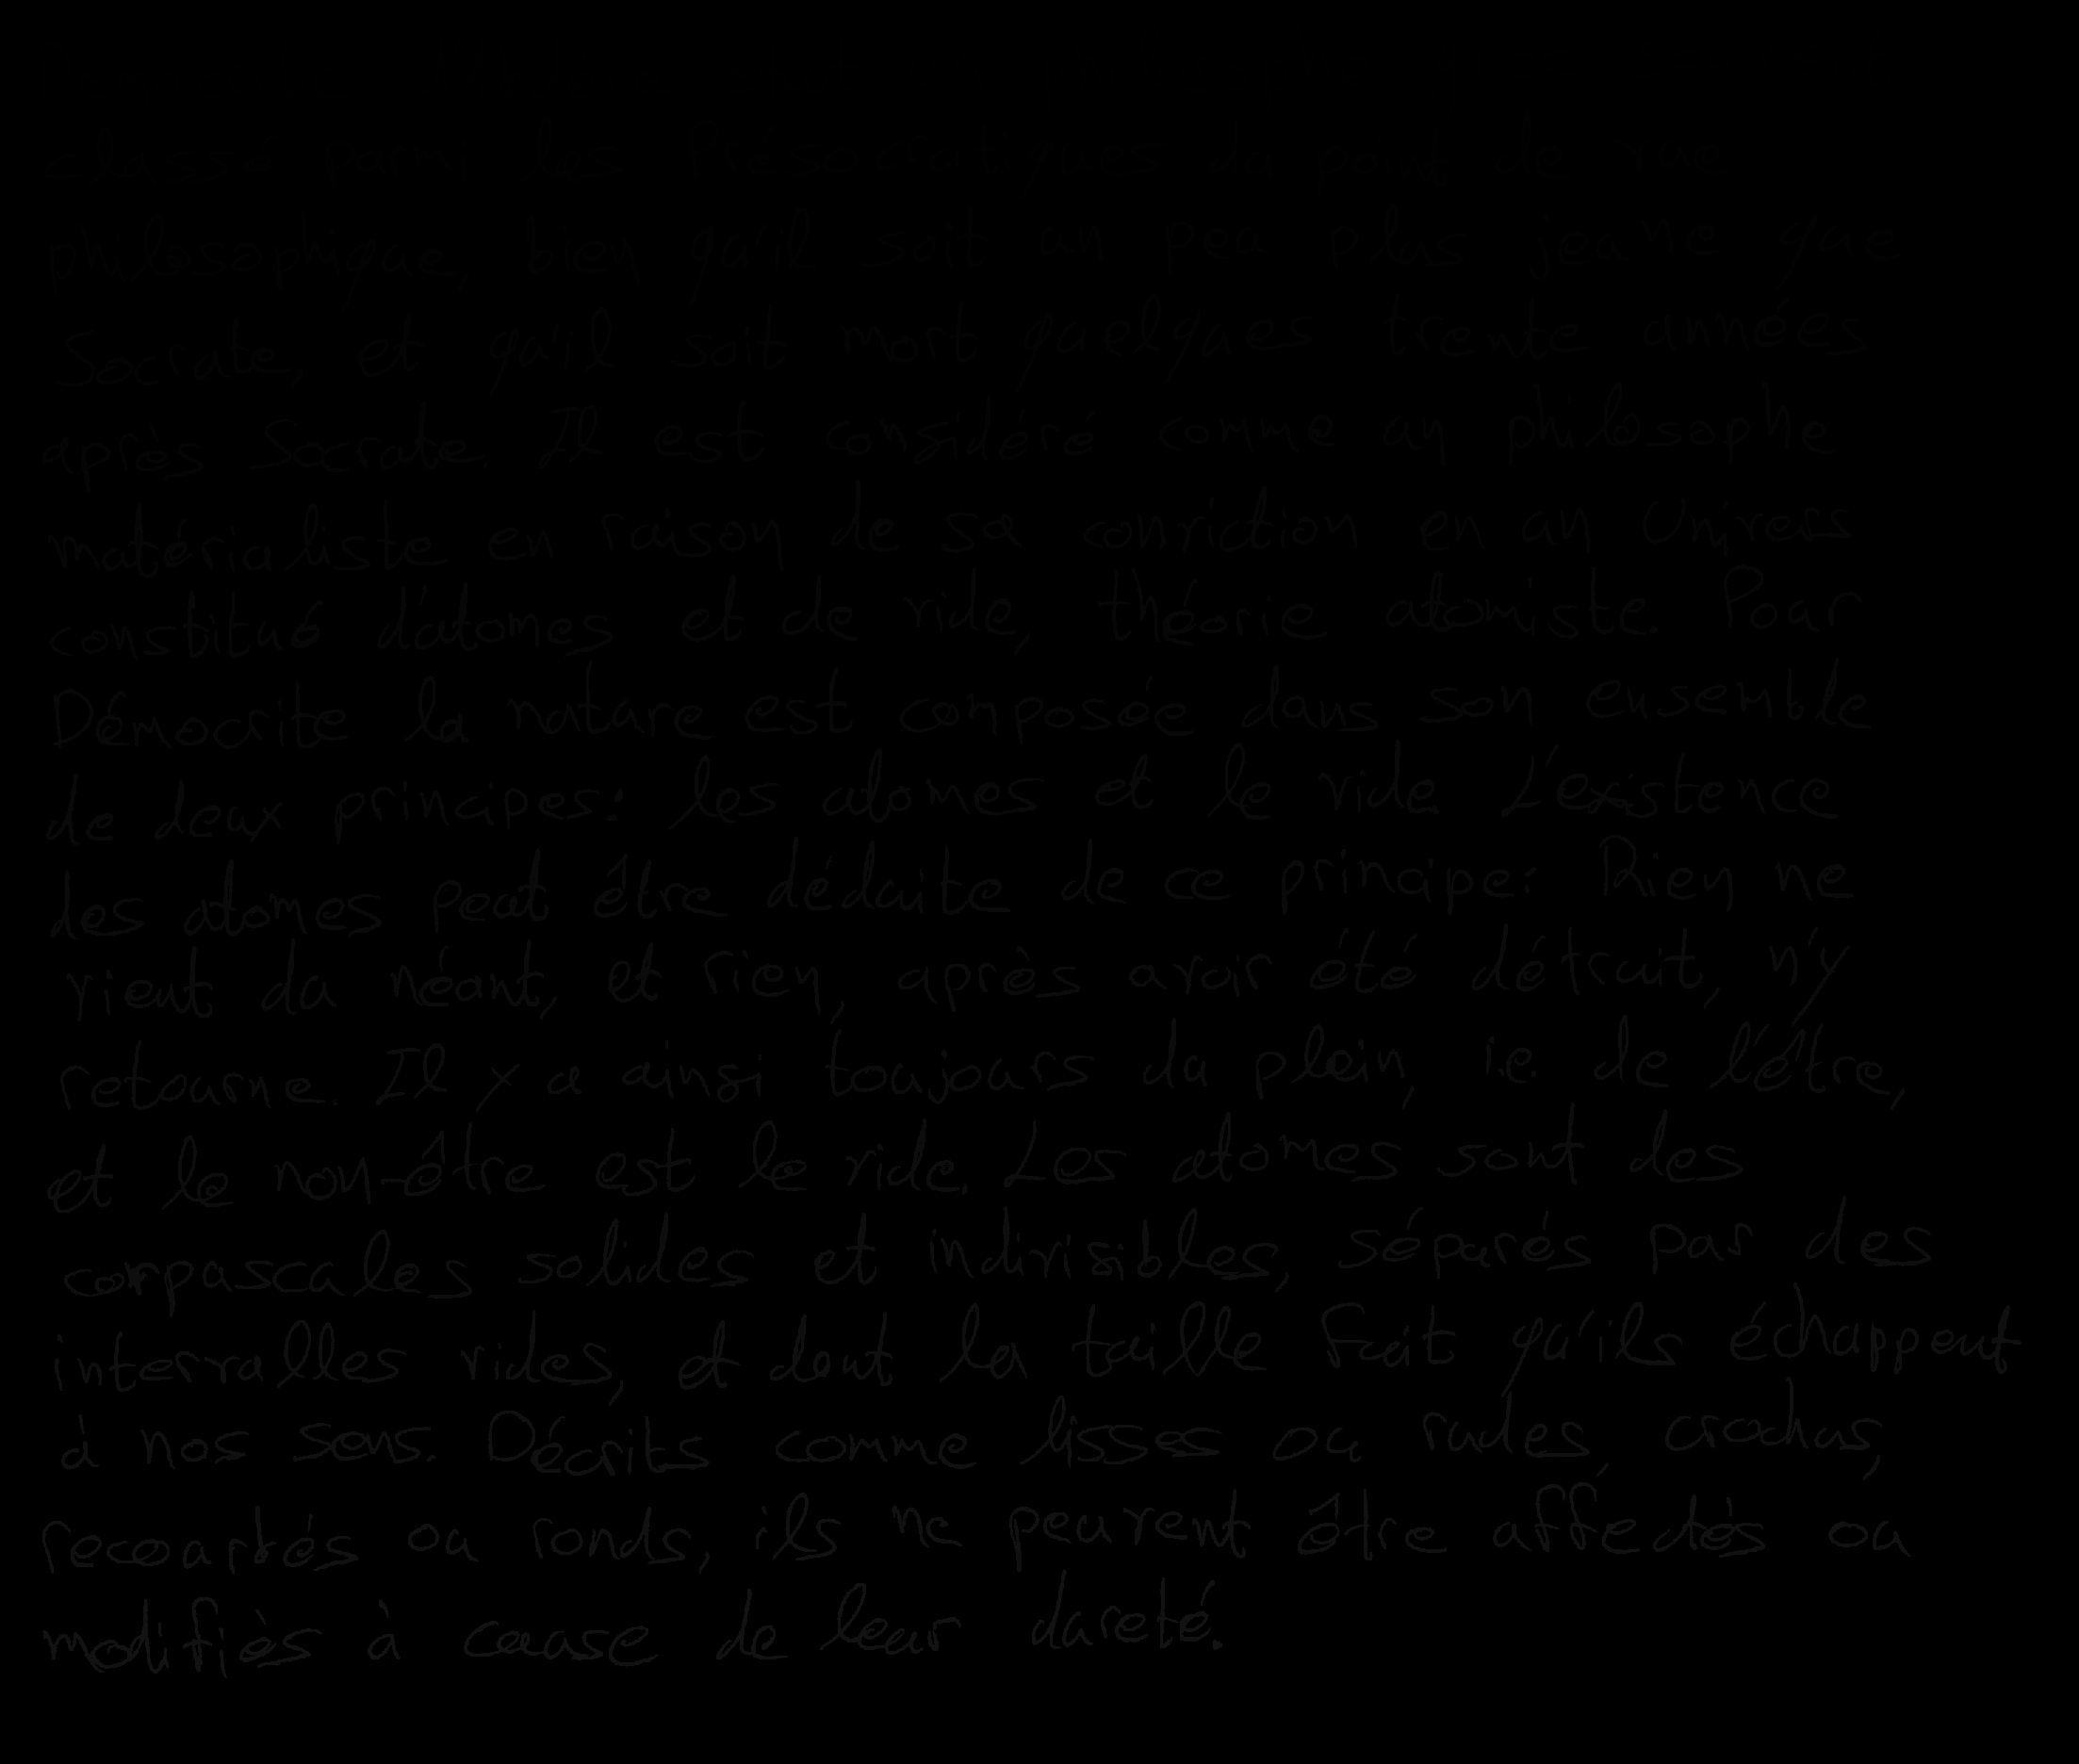 classé parmi les Présocratiques du point de vue
philosophique, bien qu'il soit un peu plus jeune que
Socrate, et qu'il soit mort quelques trente années
après Socrate. Il est considéré comme un philosophe
matérialiste en raison de sa conviction en un Univers
constitué d'atomes et de vide, théorie atomiste. Pour
Démocrite la nature est composée dans son ensemble
de deux principes: les atomes et le vide. L'existence
des atomes peut être déduite de ce principe: Rien ne
vient du néant, et rien, après avoir été détruit, n'y
retourne. Il y a ainsi toujours du plein, i.e. de l'être,
et le non-être est le vide. Les atomes sont des
corpuscules solides et indivisibles, séparés par des
intervalles vides, et dont la taille fait qu'ils échappent
à nos sens. Décrits comme lisses ou rudes, crochus,
recourbés ou ronds, ils ne peuvent être affectés ou
modifiés à cause de leur dureté.